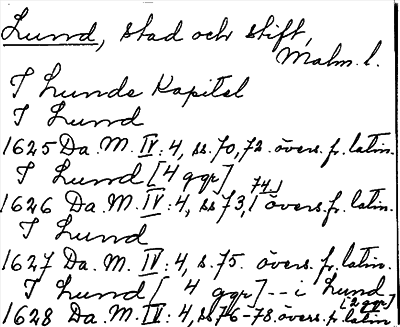 Lund, stad och stift,
Malm. l.
I Lunds Kapitel
I Lund
1625 Da. M. IV: 4, ss. 70, 72. övers. fr. latin.
I Lund [4 ggr]
1626 Da. M. IV: 4, ss 73, 74, övers. fr. latin.
I Lund
1627 Da. M. IV: 4, s. 75. övers. fr. latin.
I Lund [4 ggr] -- i Lund [2 ggr]
1628 Da. M. IV: 4, ss 76-78. övers. fr. latin.